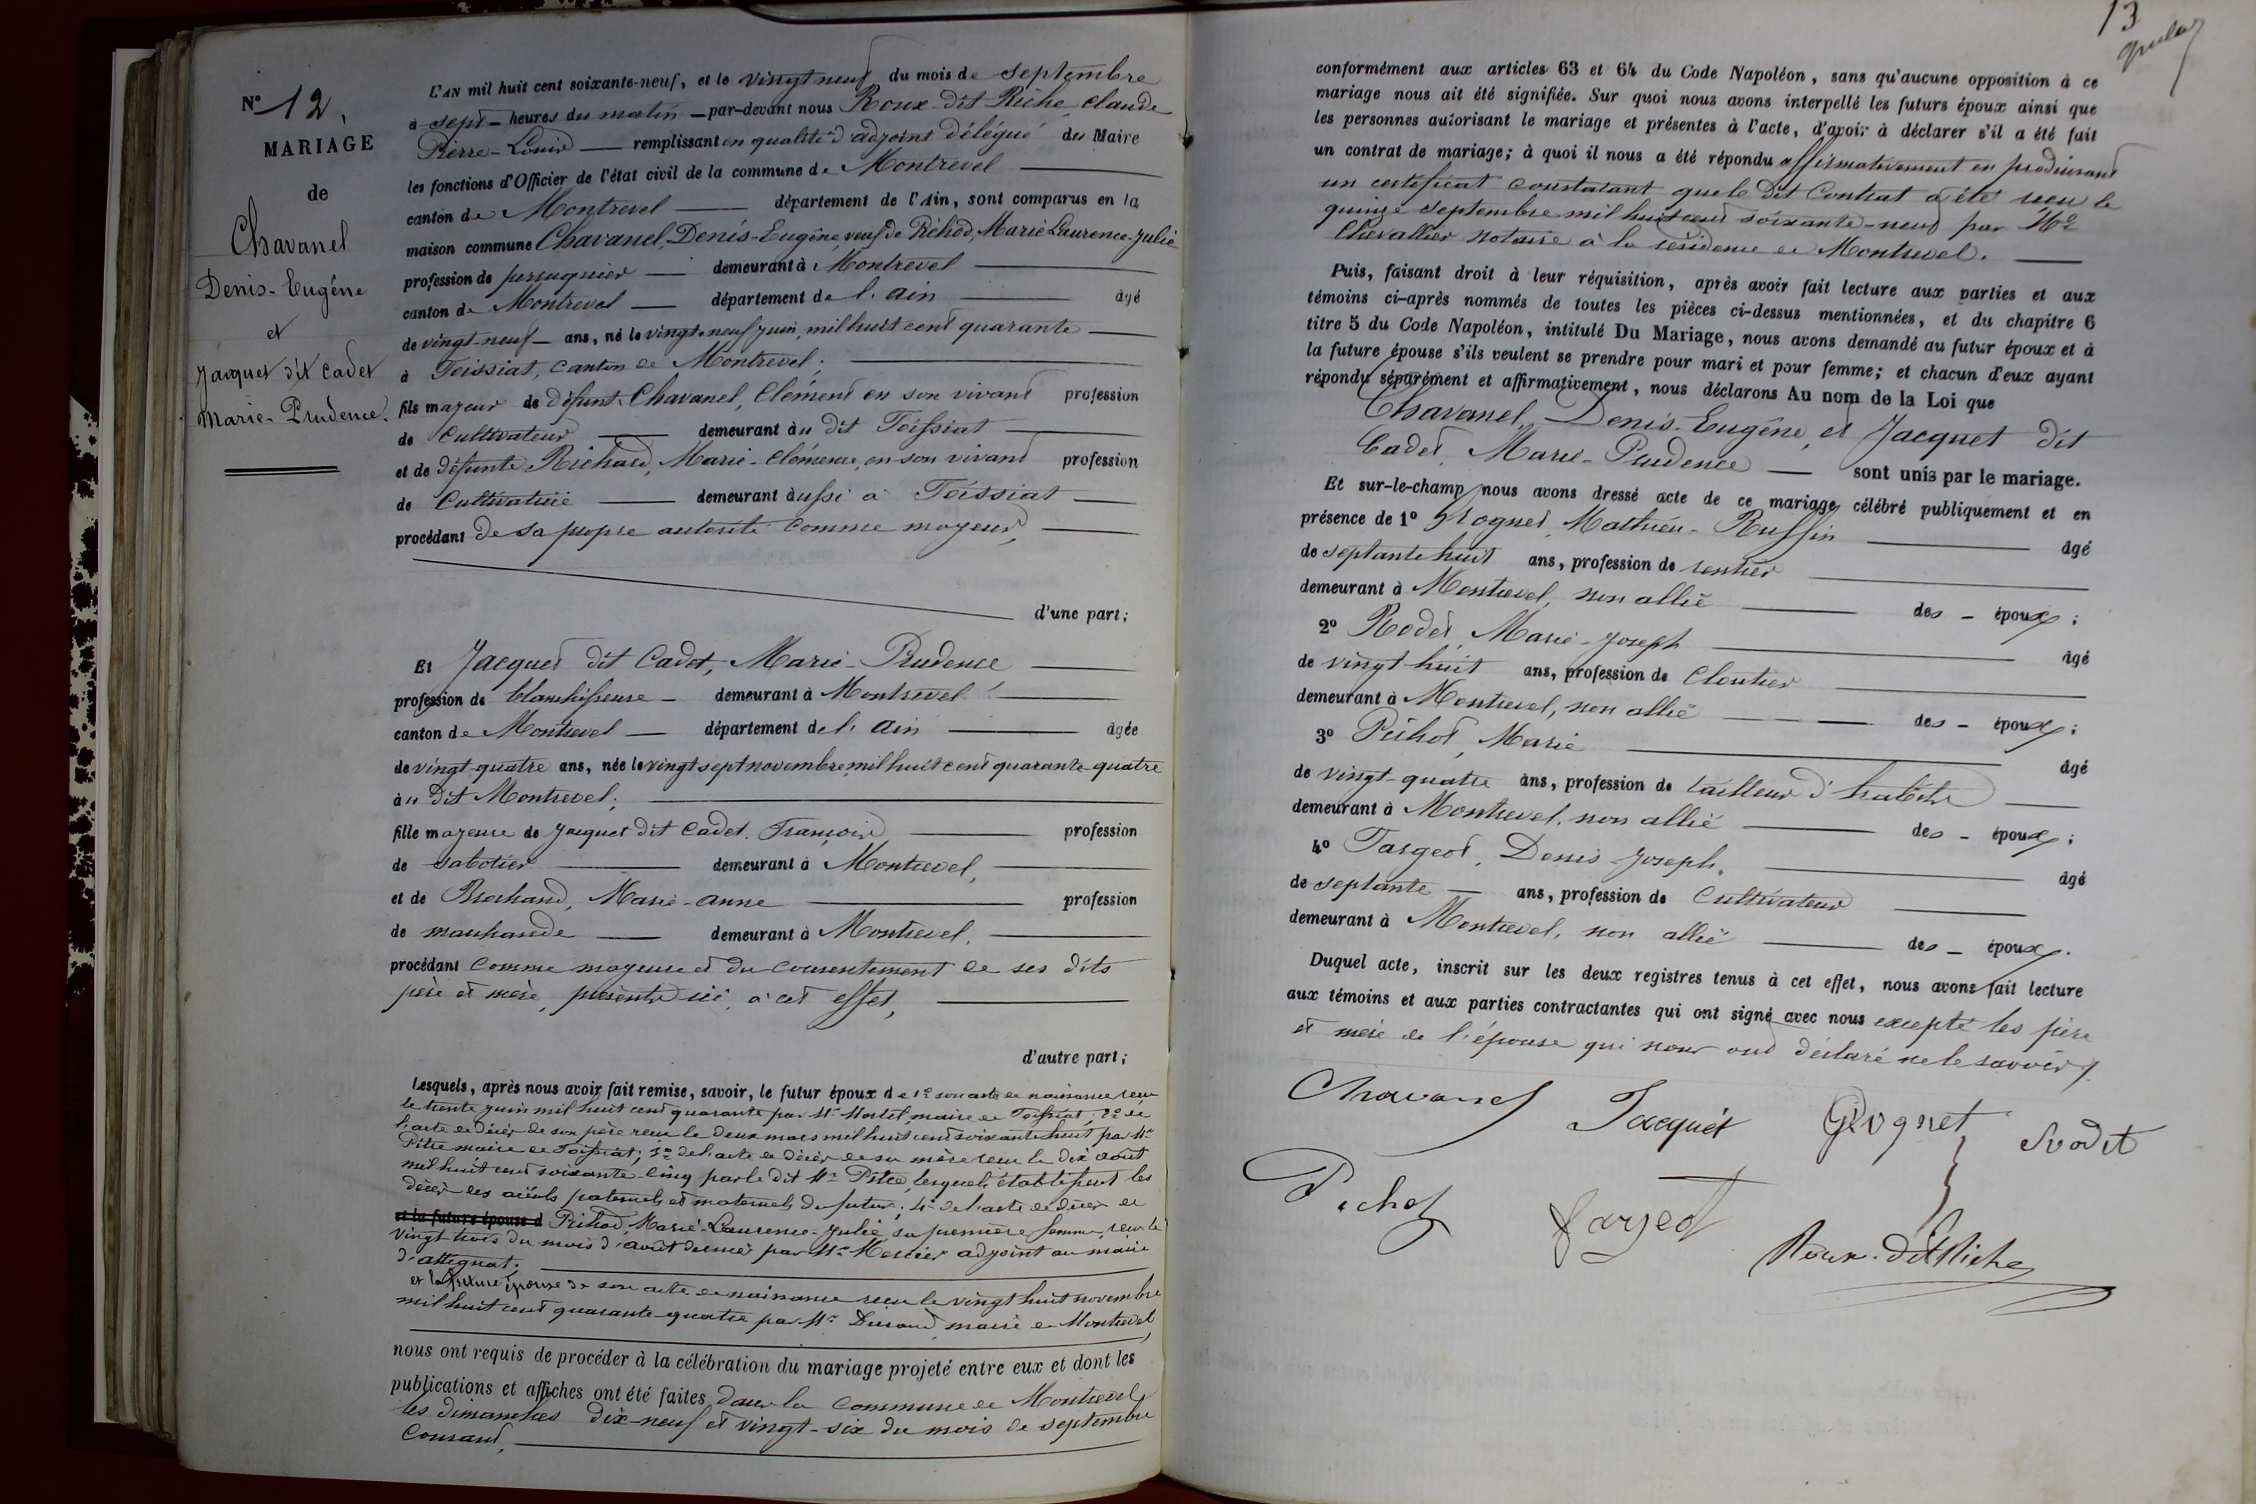 N° 12.
MARIAGE
de
Chavanel
Denis-Eugêne
et
Jacquet dit Cadet
Marie-Prudence.
L'AN mil huit cent soixante-neuf, et le vingt neuf du mois de septembre
à sept heures du matin par-devant nous Roux dit Riche, Claude
Pierre-Louis remplissant en qualité d'adjoint délégué du Maire
les fonctions d'Officier de l'état civil de la commune de Montrevel
canton de Montrevel département de l'Ain, sont comparus en la
maison commune Chavanel, Denis-Eugêne, veuf de Pichod, Marie Laurence-Julie
profession de perruquier demeurant à Montrevel
canton de Montrevel département de l'ain âgé
de vingt-neuf ans, né le vingt-neuf juin mil huit cent quarante
à Foissiat, canton de Montrevel;
fils majeur de défunt Chavanel, Clément en son vivant profession
de Cultivateur demeurant àu dit Foissiat
et de défunte Richard, Marie-Clémence, en son vivant profession
de Cultivatrice demeurant àussi à Foissiat
procédant de sa propre autorité comme majeur,
d'une part;
Et Jacquet dit Cadet, Marie-Prudence
profession de blanchisseuse demeurant à Montrevel
canton de Montrevel département de l'ain âgée
de vingt-quatre ans, née le vingt sept novembre mil huit cent quarante-quatre
àu dit Montrevel;
fille majeure de Jacquet dit Cadet, François profession
de sabotier demeurant à Montrevel,
et de Brochand, Marie-anne profession
de marchande demeurant à Montrevel,
procédant comme majeure et du consentement de ses dits
père et mère, présents ici, à cet effet,
d'autre part;
Lesquels, après nous avoir fait remise, savoir, le futur époux de 1° son acte de naissance reçu
le trente juin mil huit cent quarante par Mr maire de Foissiat; 2° de
l'acte de décès de son père reçu le deux mars mil huit cent soixante huit par Mr
Pitre maire de Foissiat; 3° de l'acte de décès de sa mère reçu le dix août
mil huit cent soixante-cinq par le dit Mr Pitre, lesquels établissent les
décès des aïeuls paternels et maternels du futur; 4° de l'acte de décès de
et la future épouse d Pichod, Marie-Laurence-Julie sa première femme, reçu le
vingt trois du mois d'août dernier par Mr Mercier adjoint au maire
d'attignat.
et la future épouse de son acte de naissance reçu le vingt huit novembre
mil huit cent quarante-quatre par Mr Durand, maire de Montrevel,
nous ont requis de procéder à la célébration du mariage projeté entre eux et dont les
publications et affiches ont été faites dans la commune de Montrevel
les dimanches dix-neuf et vingt-six du mois de septembre
Courant,
13
conformément aux articles 63 et 64 du Code Napoléon, sans qu'aucune opposition à ce
mariage nous ait été signifiée. Sur quoi nous avons interpellé les futurs époux ainsi que
les personnes autorisant le mariage et présentes à l'acte, d'avoir à déclarer s'il a été fait
un contrat de mariage; à quoi il nous a été répondu affirmativement en produisant
un certificat constatant que le dit Contrat a été reçu le
quinze septembre mil huit cent soixante-neuf par Me
Chevallier notaire à la résidence de Montrevel.
Puis, faisant droit à leur réquisition, après avoir fait lecture aux parties et aux
témoins ci-après nommés de toutes les pièces ci-dessus mentionnées, et du chapitre 6
titre 5 du Code Napoléon, intitulé Du Mariage, nous avons demandé au futur époux et à
la future épouse s'ils veulent se prendre pour mari et pour femme; et chacun d'eux ayant
répondu séparément et affirmativement, nous déclarons Au nom de la Loi que
Chavanel, Denis-Eugêne, et Jacquet dit
Cadet, Marie-Prudence sont unis par le mariage.
Et sur-le-champ nous avons dressé acte de ce mariage célébré publiquement et en
présence de 1° Grognet, Mathieu-Ruffin âgé
de septante huit ans, profession de rentier
demeurant à Montrevel, non allié des époux;
2° Rodet, Marie-Joseph âgé
de vingt huit ans, profession de Cloutier
demeurant à Montrevel, non allié des époux;
3° Pichot, Marie âgé
de vingt-quatre ans, profession de tailleur d'habits
demeurant à Montrevel, non allié des époux;
4° Fargeot, Denis-Joseph, âgé
de septante ans, profession de Cultivateur
demeurant à Montrevel, non allié des époux.
Duquel acte, inscrit sur les deux registres tenus à cet effet, nous avons fait lecture
aux témoins et aux parties contractantes qui ont signé avec nous excepté les père
et mère de l'épouse qui nous ont déclaré ne le savoir.
Chavanel Jacquet Grognet Rodet
Pichot Fargeot Roux-dit Riche